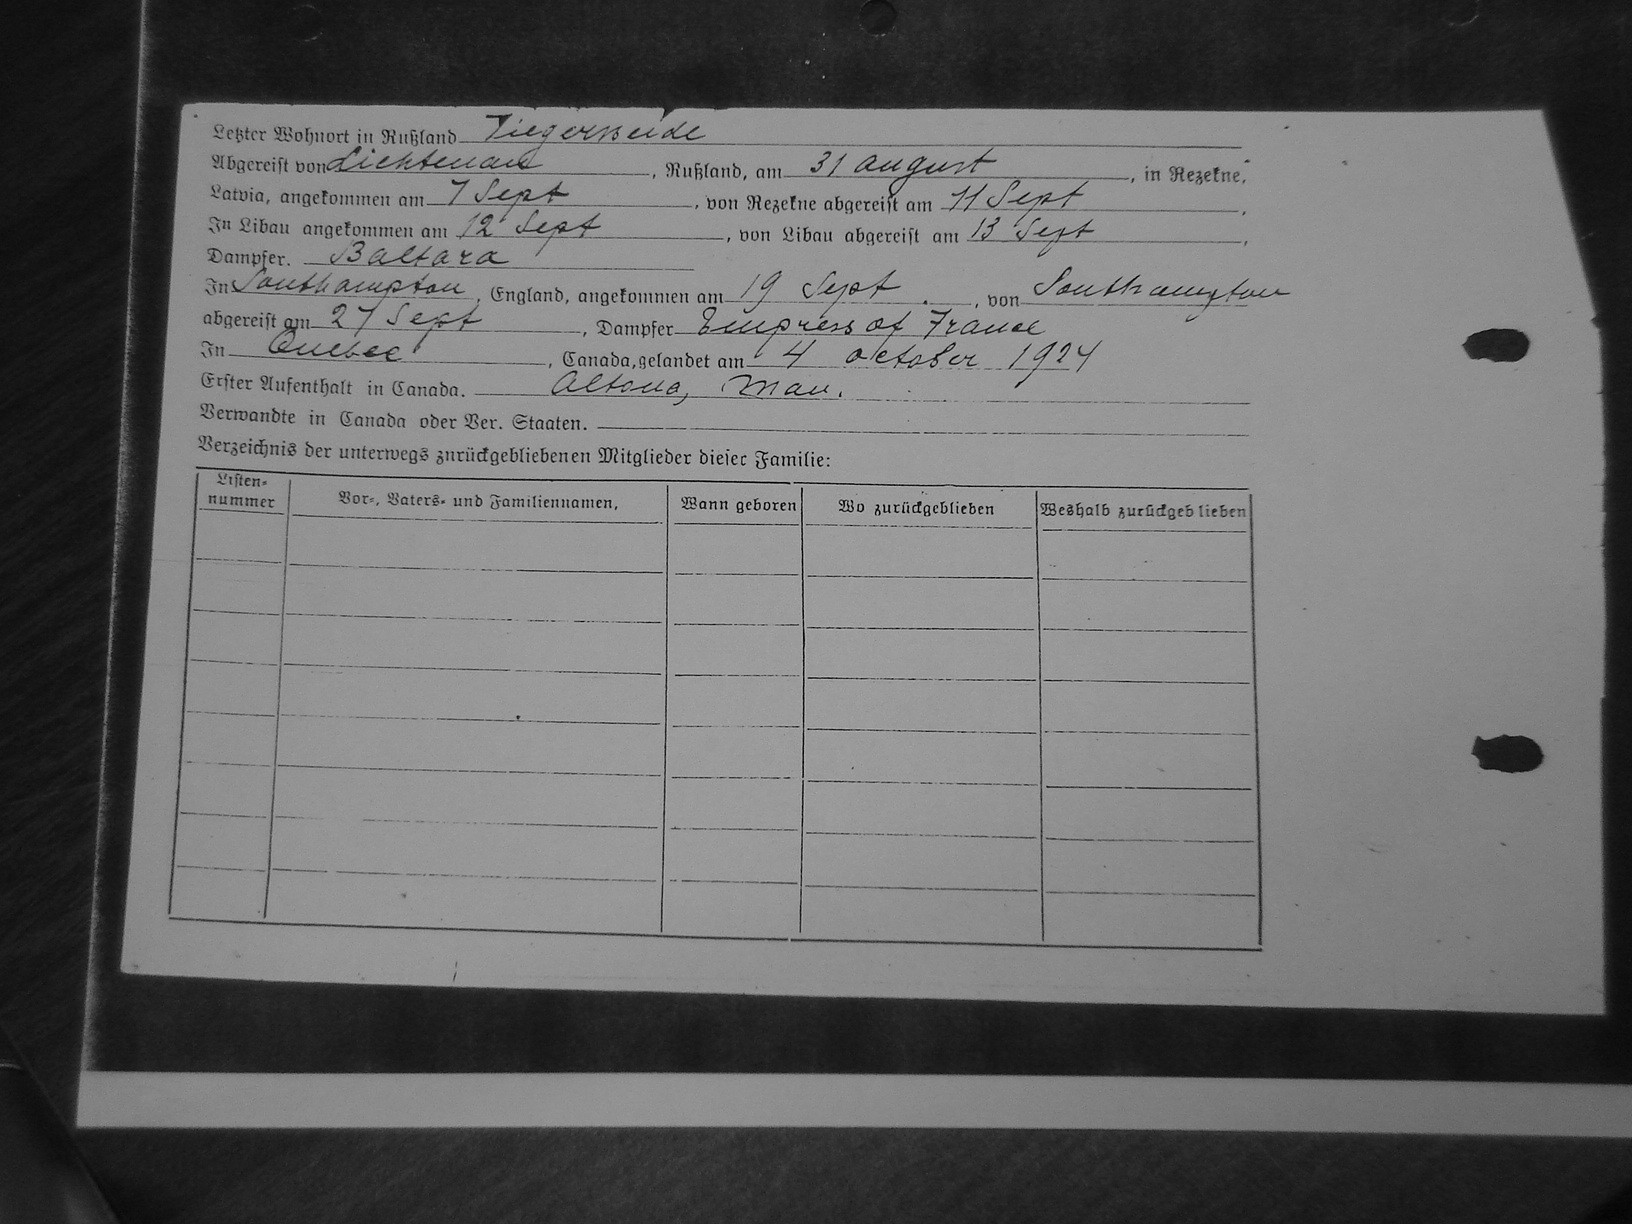 Letzter Wohnort in Rußland Tiegerweide
Abgereist von Lichtenau, Rußland, am 31 August, in Rezekne,
Latvia, angekommen am 7 Sept, von Rezekne abgereist am 11 Sept,
In Libau angekommen am 12 Sept, von Libau abgereist am 13 Sept,
Dampfer. Baltara
In Southampton, England, angekommen am 19 Sept., von Southampton
abgereist am 27 Sept, Dampfer Empress of France
In Quebec, Canada, gelandet am 4 october 1924
Erster Aufenthalt in Canada. Altona, Man.
Verwandte in Canada oder Ver. Staaten.
Verzeichnis der unterwegs znrückgebliebenen Mitglieder dieser Familie:
Listen-nummer Vor-, Vaters- und Familiennamen, Wann geboren Wo zurückgeblieben Weshalb zurückgeblieben